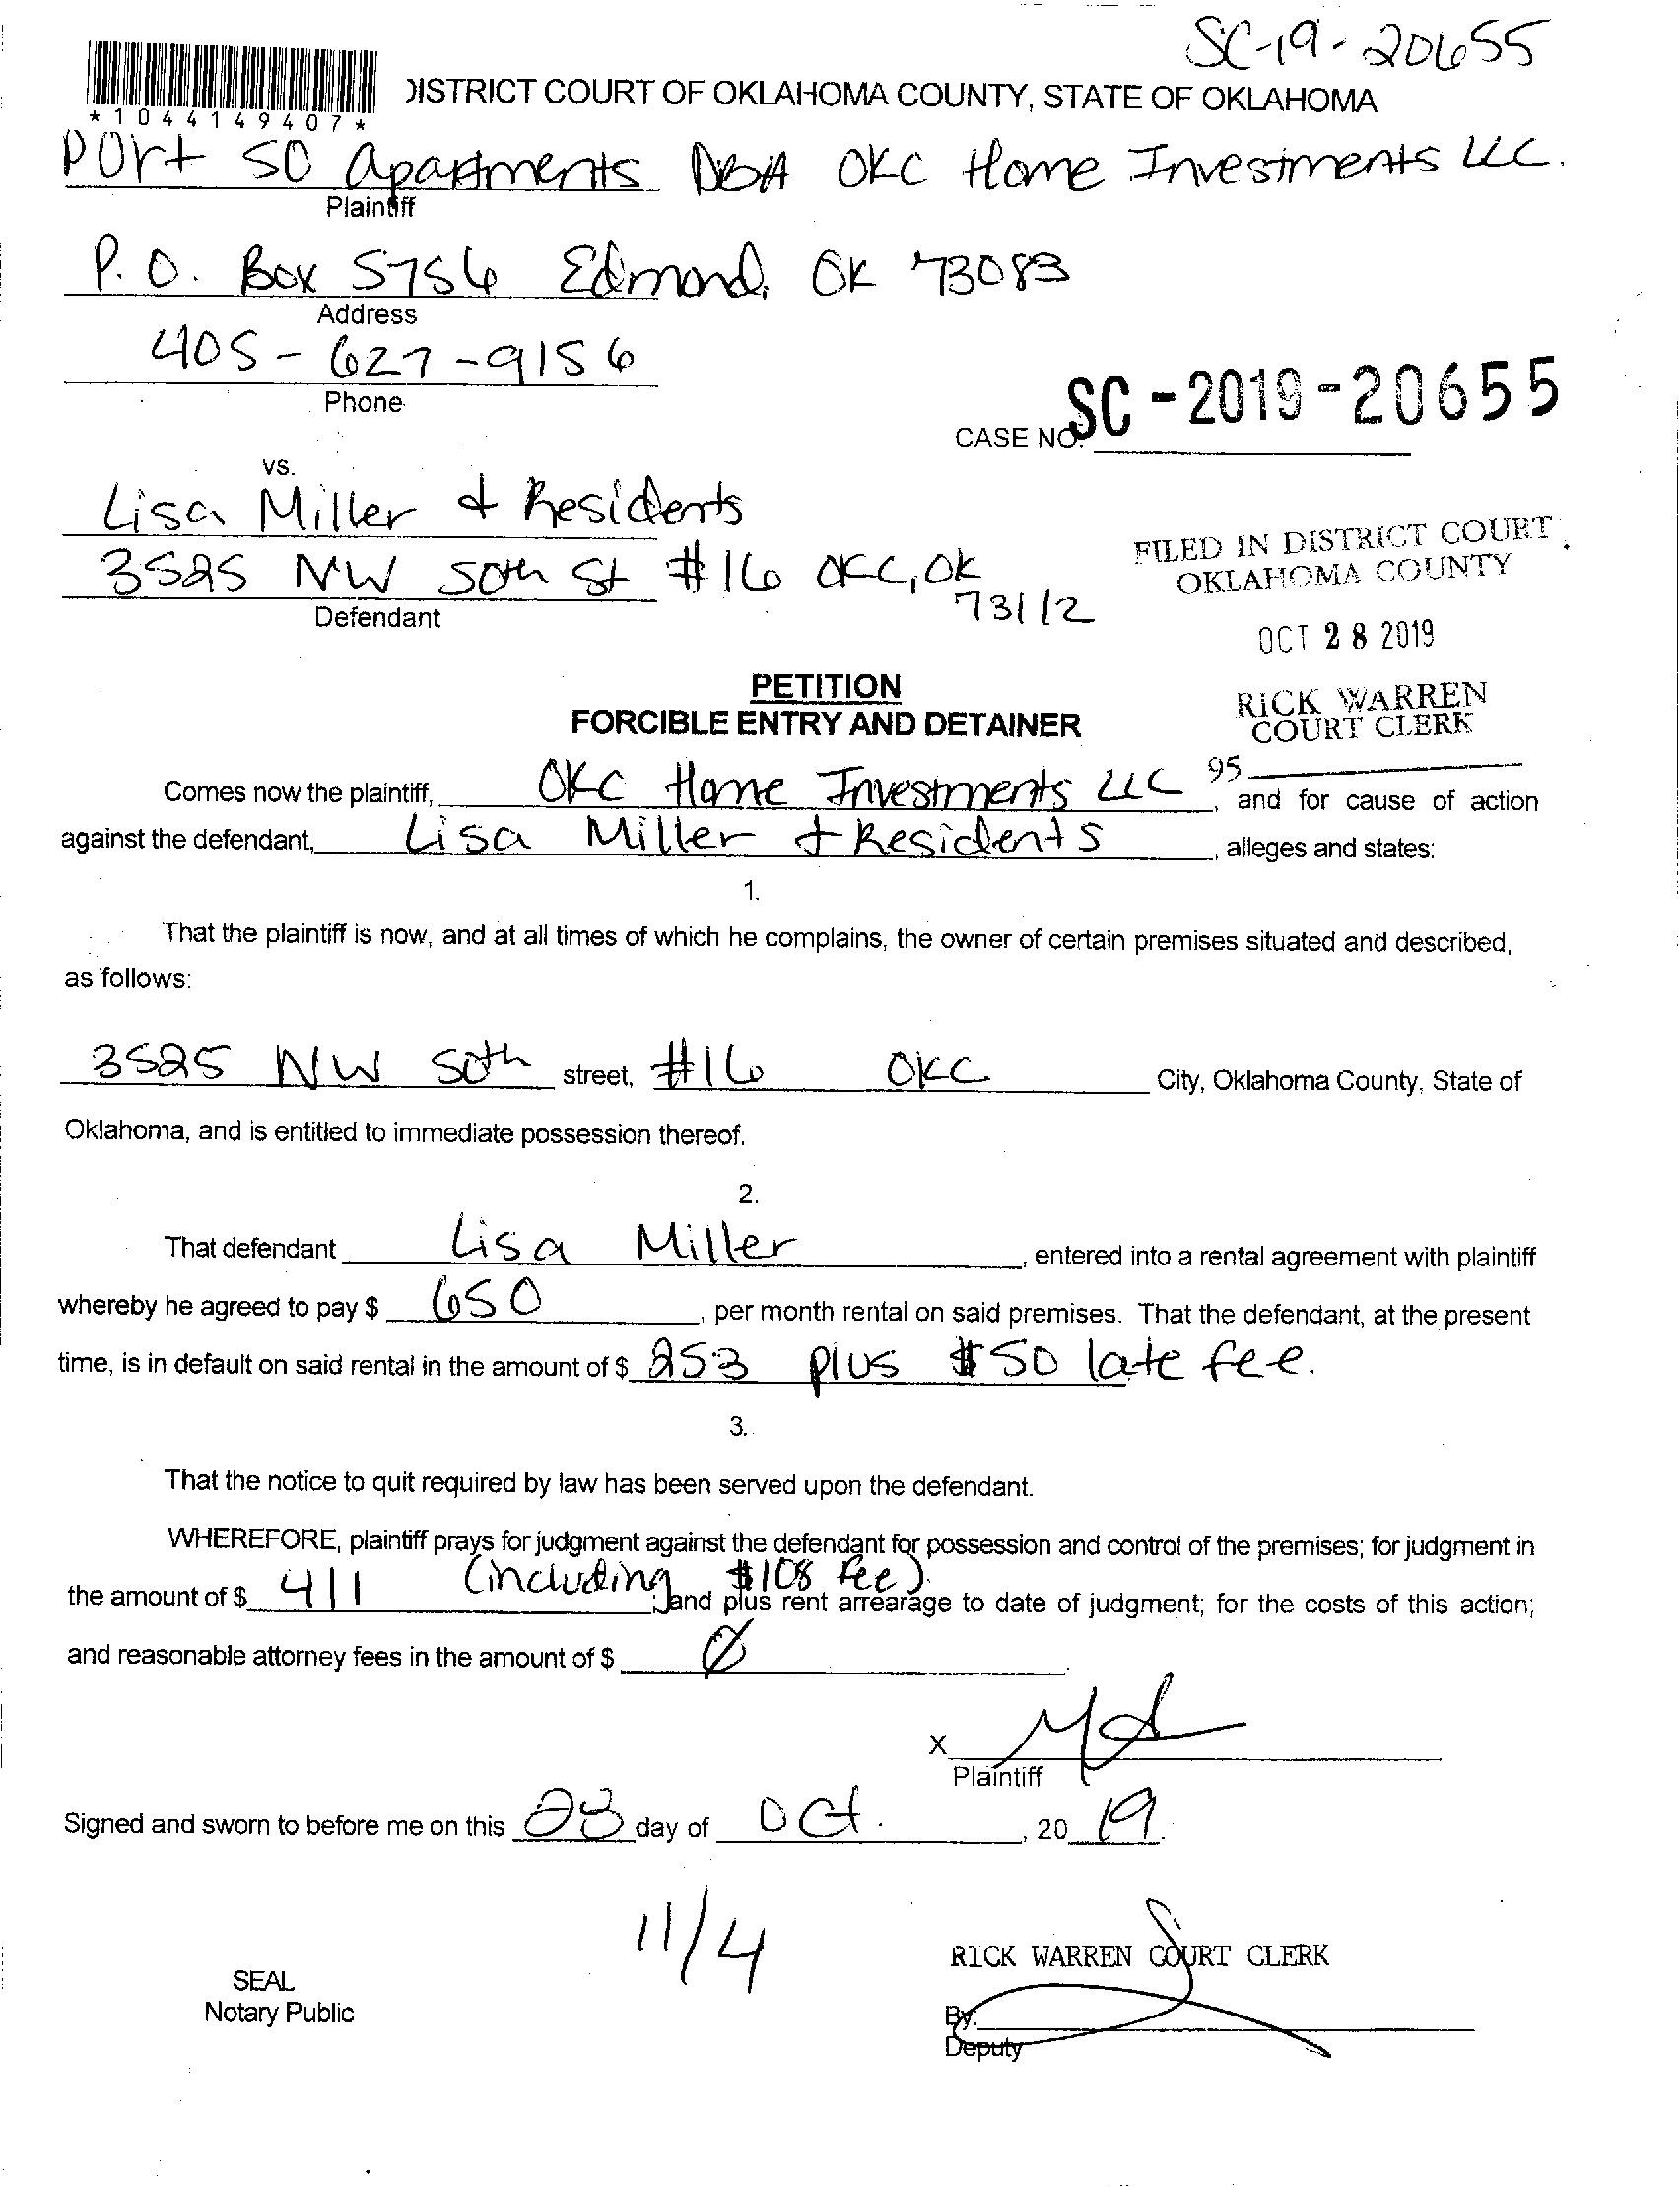 SC-19-20655
*1044149407*
DISTRICT COURT OF OKLAHOMA COUNTY, STATE OF OKLAHOMA
Port 50 apartments DBA OKC Home Investments LLC.
Plaintiff
P.O. Box 5756 Edmond, OK 73083
Address
405-627-9156
Phone
SC-2019-20655
CASE NO.
vs.
Lisa Miller & Residents
3525 NW 50th St #16 OKC, OK
73112
Defendant
FILED IN DISTRICT COURT
OKLAHOMA COUNTY
OCT 28 2019
RICK WARREN
COURT CLERK
95
PETITION
FORCIBLE ENTRY AND DETAINER
Comes now the plaintiff, OKC Home Investments LLC, and for cause of action
against the defendant, Lisa Miller & Residents, alleges and states:
1.
That the plaintiff is now, and at all times of which he complains, the owner of certain premises situated and described,
as follows:
3525 NW 50th street, #16 OKC City, Oklahoma County, State of
Oklahoma, and is entitled to immediate possession thereof.
2.
That defendant Lisa Miller, entered into a rental agreement with plaintiff
whereby he agreed to pay $ 650, per month rental on said premises. That the defendant, at the present
time, is in default on said rental in the amount of $ 253 plus $50 late fee.
3.
That the notice to quit required by law has been served upon the defendant.
WHEREFORE, plaintiff prays for judgment against the defendant for possession and control of the premises; for judgment in
the amount of $ 411 (including $108 fee); and plus rent arrearage to date of judgment; for the costs of this action;
and reasonable attorney fees in the amount of $ Ø
X
Plaintiff
Signed and sworn to before me on this 28 day of Oct., 2019.
11/4
RICK WARREN COURT CLERK
SEAL
Notary Public
By:
Deputy